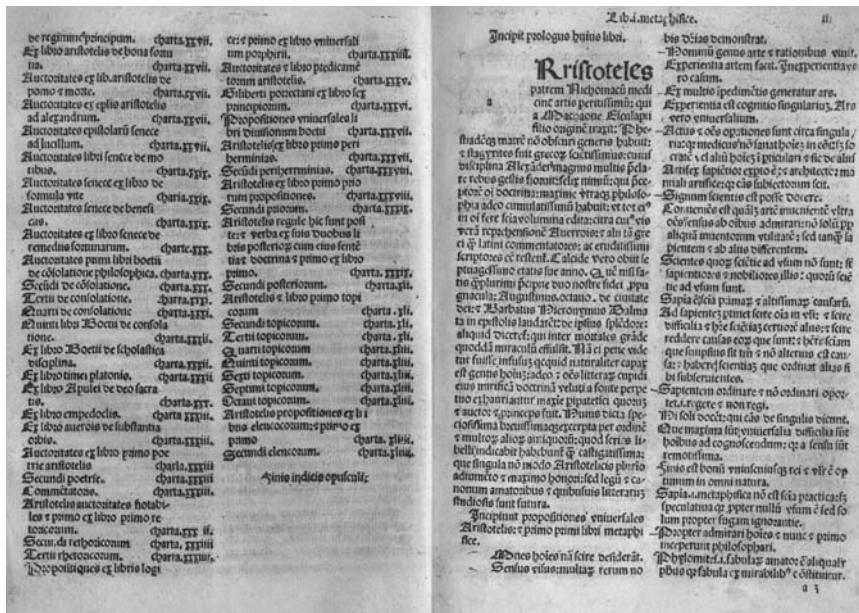 de regimine principum. charta.xxvii.
Ex libro aristotelis de bona fortu
na. charta.xxvii.
Auctoritates ex lib.aristotelis de
pomo & morte. charta.xxvii.
Auctoritates ex eplis aristotelis
ad alexandrum. charta.xxvii.
Auctoritates epistolarũ senece
ad lucillum. charta.xxvii.
Auctoritates libri senece de mo
ribus. charta.xxix.
Auctoritates senece ex libro de
formula vite charta.xxix.
Auctoritates senece de benefi
ciis. charta.xxix.
Auctoritates ex libro senece de
remediis fortunarum. charte.xxx.
Auctoritates primi libri boetii
de cõsolatione philosophica. charta.xxx.
Secũdi de cõsolatione. charta.xxx.
Tertii de consolatione. charta.xxxi.
Quarti de consolatione charta.xxxi.
Quinti libri Boetii de consola
tione. charta.xxxi.
Ex libro Boetii de scholastica
disciplina. charta.xxxii.
Ex libro timei platonis. charta.xxxii
Ex libro Apulei de deo socra
tis. charta.xxxii.
Ex libro empedoclis. charta.xxxii.
Ex libro auerois de substantia
orbis. charta.xxxiii.
Auctoritates ex libro primo poe
trie aristotelis charta.xxxiii
Secundi poetrie. charta.xxxiii
Commẽtatoris. charta.xxxiii.
Aristotelis auctoritates notabi
les & primo ex libro primo re
toricorum.
Secundi rethoricorum charta.xxxiiii
Tertii rhetoricorum. charta.xxxiiii.
Propositiones ex libris logi
ce: & primo ex libro vniuersali
um porphirii. charta.xxxiiii.
Auctoritates & libro predicamẽ
torum aristotelis. charta.xxxv.
Gilberti porretani ex libro sex
principiorum. charta.xxxv.
Propositiones vniuersales li
bri diuisionum boetii charta.xxxvi.
Aristotelis ex libro primo peri
herminias. charta.xxxvi.
Secũdi periherminias. charta.xxxvii.
Aristotelis ex libro primo prio
rum propositiones. charta.xxxviii.
Secundi priorum. charta.xxxviii.
Aristotelis regule hic sunt posi
te & verba ex suis duobus li
bris posterioꝝ cum eius sentẽ
tia & doctrina & primo ex libro
primo. charta.xxxix.
Secundi posteriorum. charta.xl.
Aristotelis & libro primo topi
corum charta.xli.
Secundi topicorum. charta.xli.
Tertii topicorum. charta.xlii.
Quarti topicorum charta.xliii.
Quinti topicorum. charta.xliii.
Sexti topicorum. charta.xliii.
Septimi topicorum. charta.xliii.
Octaui topicorum. charta.xliii.
Aristotelis propositiones ex li
bris elencorum: & primo ex
primo charta.xliiii.
Secundi elencorum. charta.xliiii.
Finis indicis opusculi.
Lib.i.metaphisice. ii.
Incipit prologus huius libri.
a
Aristoteles
patrem Nichomacũ medi
cine artis peritissimũ: qui
a Machaone Esculapii
filio originẽ traxit: Phe
stiadẽqꝫ matrẽ nõ obscuri generis habuit:
& stagyrites fuit grecoꝝ sciẽtissimus: cuius
disciplina Alexãder magnus multis
rebus gestis floruit: felix nimiũ: qui
doctrina: maxime vtraqꝫ philoso-
phia adeo cumulatissimũ habuit: vt
in oi fere scia volumina edita:
verã reprehensionẽ Auerrois: & alii tã gre
ci ꝙ̃ latini commentatores: ac eruditissimi
scriptores testent. Calcide vero obiit se
ptuagessimo etatis sue anno.
gnacula: Augustinus.octauo. de ciuitate
dei: & Barbatus Hieronymus Dalma
ta in epistolis laudarẽt: de ipsius splẽdore:
aliquid dicerẽ: qui inter mortales grãde
quoddã miraculũ effulsit.
tur fuisse infusũ: quicqd naturaliter capax
est gentis hoiuꝫ: adeo & oẽs litteraꝝ cupidi
eius mirificã doctrinã veluti a fonte perpe
tuo exhauriantur maxie pipatetici quorum
& auctor & princeps fuit. Huius dicta spe
ciosissima breuissimaqꝫ excerpta per ordinẽ
& multoꝝ alioꝝ antiquorũ: quod
belli indicabit habebunt castigatissima:
que singula nõ modo Aristotelicis plurio
adiumẽto & maximo honori: sed legũ & ca-
nonum amatoribus & quibusuis litteraruꝫ
studiosis sunt futura.
Incipiunt propositiones vniuersales
Aristotelis: & primo primi libri metaphi
sice.
Omnes hoies nã scire desiderãt.
Sensus visus: multaꝝ rerum no
bis dr̃ias demonstrat.
Hominũ genus arte & rationibus viuit.
Experientia artem facit. Inexperientia ve
ro casum.
Ex multis ipedimẽtis generatur ars.
Experientia est cognitio singulariuꝫ. Ars
vero vniuersalium.
Actus & oẽs opationes sunt circa singula
ria: medicus nõ sanat hoiez in
Artifex sapiẽtior & architector: ma
nuali artifice: cãs subiectorum scit.
Signum scientis est posse docere.
aliquã inuentorum vtilitatẽ: sed tanꝙ̃ sa
pientem & ab aliis differentem.
Scientes quoqꝫ sciẽtie ad vsum nõ sunt: sꝫ
sapientiores & nobiliores illis: quorũ sciẽ
tie ad vsum sunt.
Sapia ẽ scia primaꝝ & altissimaꝝ causarũ.
Ad sapientẽ ptinet scire oia in vli: & scire
difficilia & hr̃e sciẽtiaꝫ certiorẽ aliis: & scire
reddere causas eoꝝ que sunt: & hr̃e sciam
que sui ipsius sit tm̃ & nõ alterius est cau-
sa: & habere scientiaꝫ que ordinat alias si
bi subseruientes.
Sapientem ordinare & nõ ordinari opor-
tet.i.regere & non regi.
Hi soli docẽt: qui cãs de singulis dicunt.
Que maxima sũt vniuersalia difficilia sũt
hoibus ad cognoscendum: qꝫ a sensu sũt
remotissima.
Finis est bonũ vniuscuiusqꝫ rei & vlr̃ op
timum in omni natura.
Sapia.i.metaphisica nõ est scia practica: sꝫ
speculatiua qꝫ ppter nullũ vsum ẽ sed so
lum propter fugam ignorantie.
Propter admirari hoies & nunc & primo
inceperunt philosophari.
Phylomites.i.fabulaꝝ amator ẽ aliqualr̃
phus qꝫ fabula ex mirabilibꝰ cõstituitur.
a 3